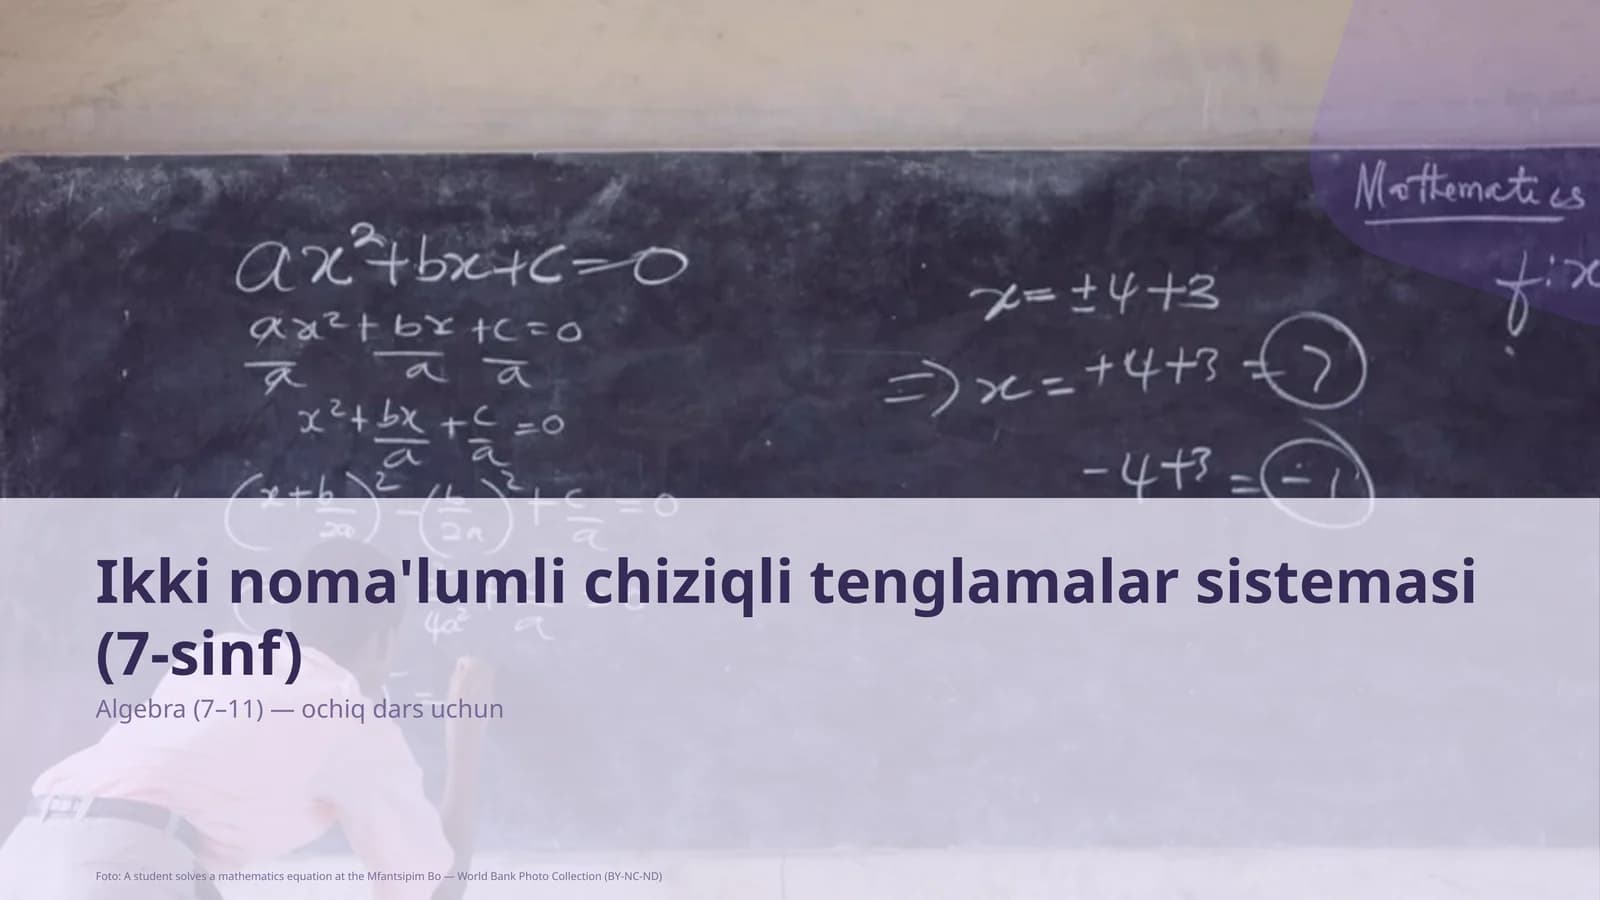 Mathematics
ax²+bx+c=0
ax²/a + bx/a + c/a = 0
x²+bx/a+c/a=0
(x+b/2a)²-(b/2a)²+c/a=0
4a² a
x=±4+3
⇒x=+4+3=7
-4+3=-1
Ikki noma'lumli chiziqli tenglamalar sistemasi
(7-sinf)
Algebra (7–11) — ochiq dars uchun
Foto: A student solves a mathematics equation at the Mfantsipim Bo — World Bank Photo Collection (BY-NC-ND)